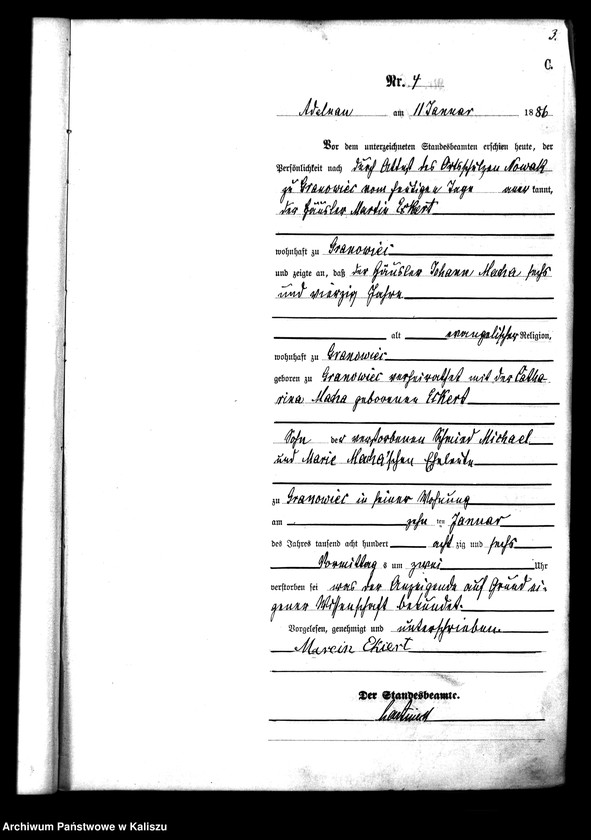 3.
C.
Nr. 4
Adelnau am 11 Januar 1886
Vor dem unterzeichneten Standesbeamten erschien heute, der
Persönlichkeit nach durch Attest des Ortsschulzen Nowak
zu Granowiec vom heutigen Tage anerkannt,
der Häusler Martin Eckert
wohnhaft zu Granowiec
und zeigte an, daß der Häusler Johann Macha sechs
und vierzig Jahre
alt evangelischer Religion,
wohnhaft zu Granowiec
geboren zu Granowiec verheirathet mit der Catha
rina Macha geborenen Eckert
Sohn der verstorbenen Schmied Michael
und Marie Macha'schen Eheleute
zu Granowiec in seiner Wohnung
am zehn ten Januar
des Jahres tausend acht hundert acht zig und sechs
Vormittags um zwei Uhr
verstorben sei was der Anzeigende auf Grund ei-
gener Wissenschaft bekundet.
Vorgelesen, genehmigt und unterschrieben
Marcin Ekiert
Der Standesbeamte.
Archiwum Państwowe w Kaliszu